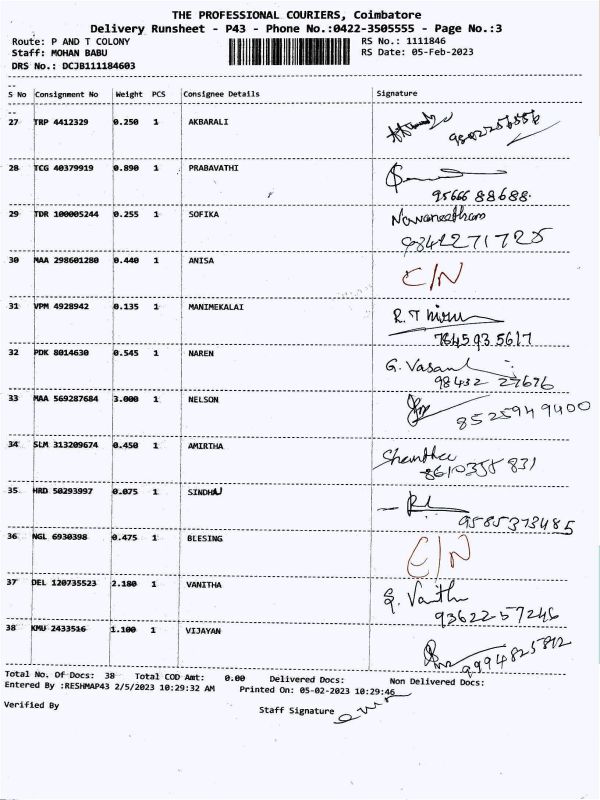 THE PROFESSIONAL COURIERS, Coimbatore
Delivery Runsheet - P43 - Phone No.:0422-3505555 - Page No.:3
Route: P AND T COLONY RS No.: 1111846
Staff: MOHAN BABU RS Date: 05-Feb-2023
DRS No.: DCJB111184603
S No Consignment No Weight PCS Consignee Details Signature
27 TRP 4412329 0.250 1 AKBARALI
28 TCG 40379919 0.890 1 PRABAVATHI
95666 88688.
29 TDR 100005244 0.255 1 SOFIKA Navaneetham
9842271725
30 MAA 298601280 0.440 1 ANISA C/N
31 VPM 4928942 0.135 1 MANIMEKALAI R.T
784593 5617
32 PDK 8014630 0.545 1 NAREN G. Vasan
98432 27676
33 MAA 569287684 3.000 1 NELSON
8525949400
34 SLM 313209674 0.450 1 AMIRTHA Shantha
8610358 831
35 HRD 50293997 0.075 1 SINDHAJ
9585373485
36 NGL 6930398 0.475 1 BLESING C/N
37 DEL 120735523 2.180 1 VANITHA
93622 57246
38 KMU 2433516 1.100 1 VIJAYAN
9994825812
Total No. Of Docs: 38 Total COD Amt: 0.00 Delivered Docs: Non Delivered Docs:
Entered By :RESHMAP43 2/5/2023 10:29:32 AM Printed On: 05-02-2023 10:29:46
Verified By Staff Signature